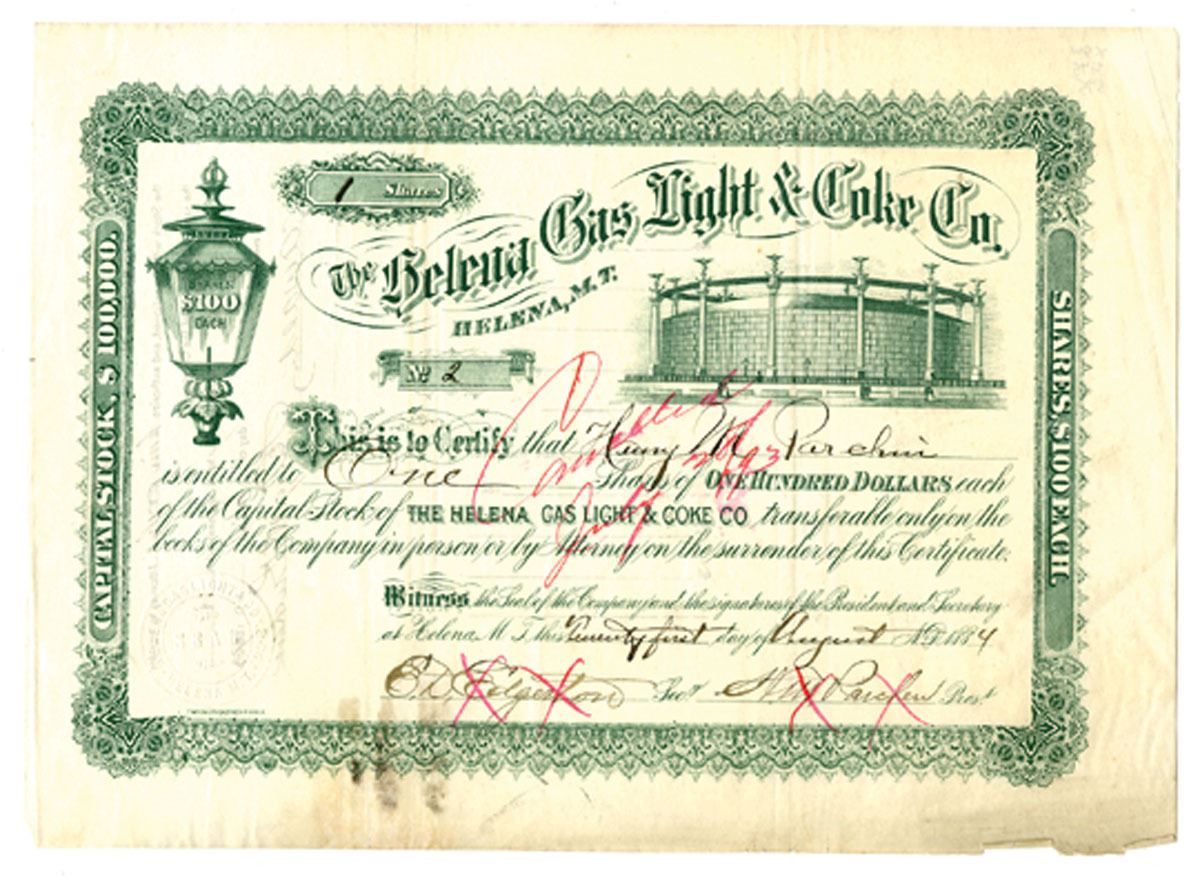 1 Shares
The Helena Gas Light & Coke Co.
HELENA, M.T.
SHARES
$100
EACH
No 2
CAPITAL STOCK, $100,000.
SHARES, $100 EACH.
This is to Certify that Henry M. Parchin
is entitled to One Share of ONE HUNDRED DOLLARS each
of the Capital Stock of THE HELENA GAS LIGHT & COKE CO transferable only on the
books of the Company in person or by Attorney on the surrender of this Certificate.
Cancelled
July 93
Witness the Seal of the Company and the signatures of the President and Secretary
at Helena M.T. this Twenty first day of August A.D. 1884
E D Edgerton Secy H M Parchen Prest
HELENA M.T.